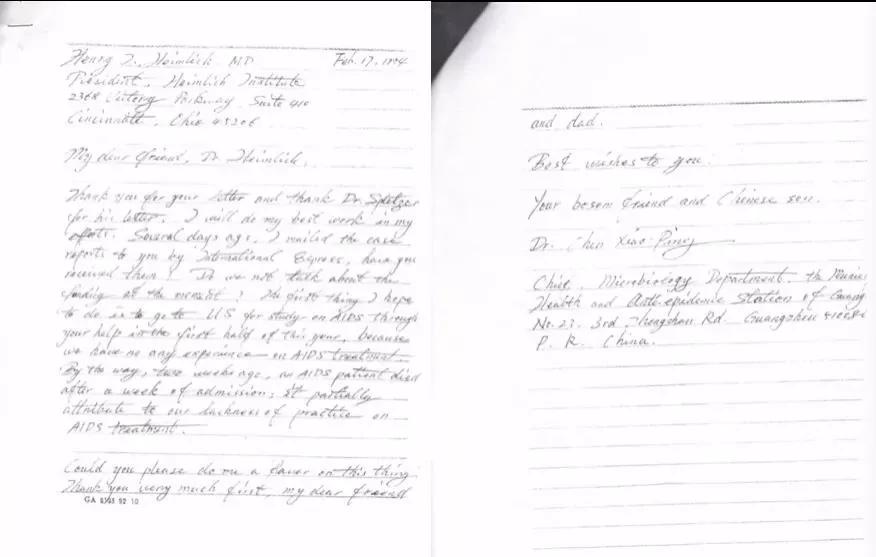 Henry J. Heimlich M.D Feb. 17. 1994
President, Heimlich Institute
2368 Victory Parkway, Suite 410
Cincinnati, Ohio 45206
My dear friend, Dr. Heimlich,
Thank you for your letter and thank Dr. Spletzer
for his letter. I will do my best work in my
efforts. Several days ago, I mailed the case
reports to you by International Express, have you
received them? Do we not talk about the
funding at the moment? The first thing I hope
to do is to go to US for study on AIDS through
your help in the first half of this year, because
we have no any experience on AIDS treatment.
By the way, two weeks ago, an AIDS patient died
after a week of admission; it partially
attribute to our lackness of practice on
AIDS treatment.
Could you please do me a favor on this thing.
Thank you very much first, my dear friend
GA 8363 92 10
and dad.
Best wishes to you.
Your bosom friend and Chinese son.
Dr. Chen Xiao Ping
Chief, Microbiology Department, the
Health and Anti-epidemic Station of
No. 23. 3rd Zhongshan Rd. Guangzhou
P. R. China.